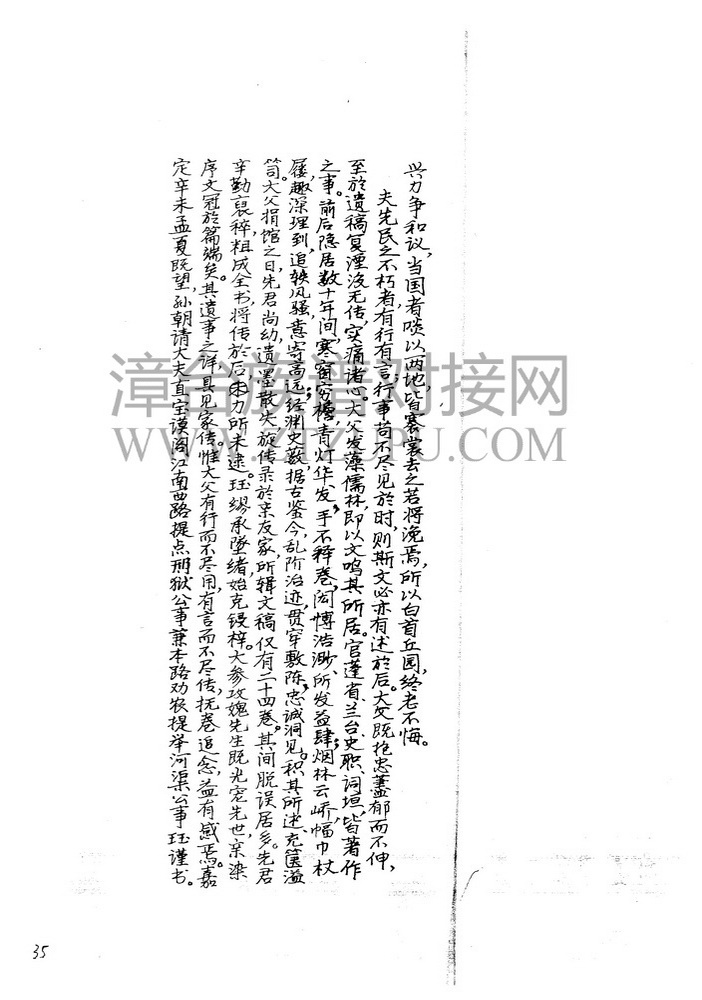 兴力争和议，当国者啖以两地，皆褰裳去之若将浼焉，所以白首丘园，终老不悔。
夫先民之不朽者，有行有言；行事苟不尽见於时，则斯文必亦有述於后。大父既抱忠荩郁而不伸，
至於遗稿复湮没无传，实痛诸心。大父发藻儒林，即以文鸣其所居。官蓬省、兰台史职、词垣，皆著作
之事。前后隐居数十年间，寒窗穷檐，青灯华发，手不释卷，闳博浩渺，所发益肆；烟林云峤，幅巾杖
屦，趣深理到，追轶风骚，意寄高远；经渊史薮，据古鉴今，乱阶治迹，贯穿敷陈，忠诚洞见。积其所述，充箧溢
笥。大父捐馆之日，先君尚幼，遗墨散失，旋传录於亲友家，所辑文稿仅有二十四卷。其间脱误居多。先君
辛勤裒稡，粗成全书，将传於后，未力所未逮。珏缪承坠绪，始克锓梓。大参攻媿先生既光宠先世，亲染
序文冠於篇端矣。其遗事之详，具见家传。惟大父有行而不尽用，有言而不尽传，抚卷追念，益有感焉。嘉
定辛未孟夏既望，孙朝请大夫直宝谟阁江南西路提点刑狱公事兼本路劝农提举河渠公事珏谨书。
漳台族谱对接网
WWW.ZTZUPU.COM
35